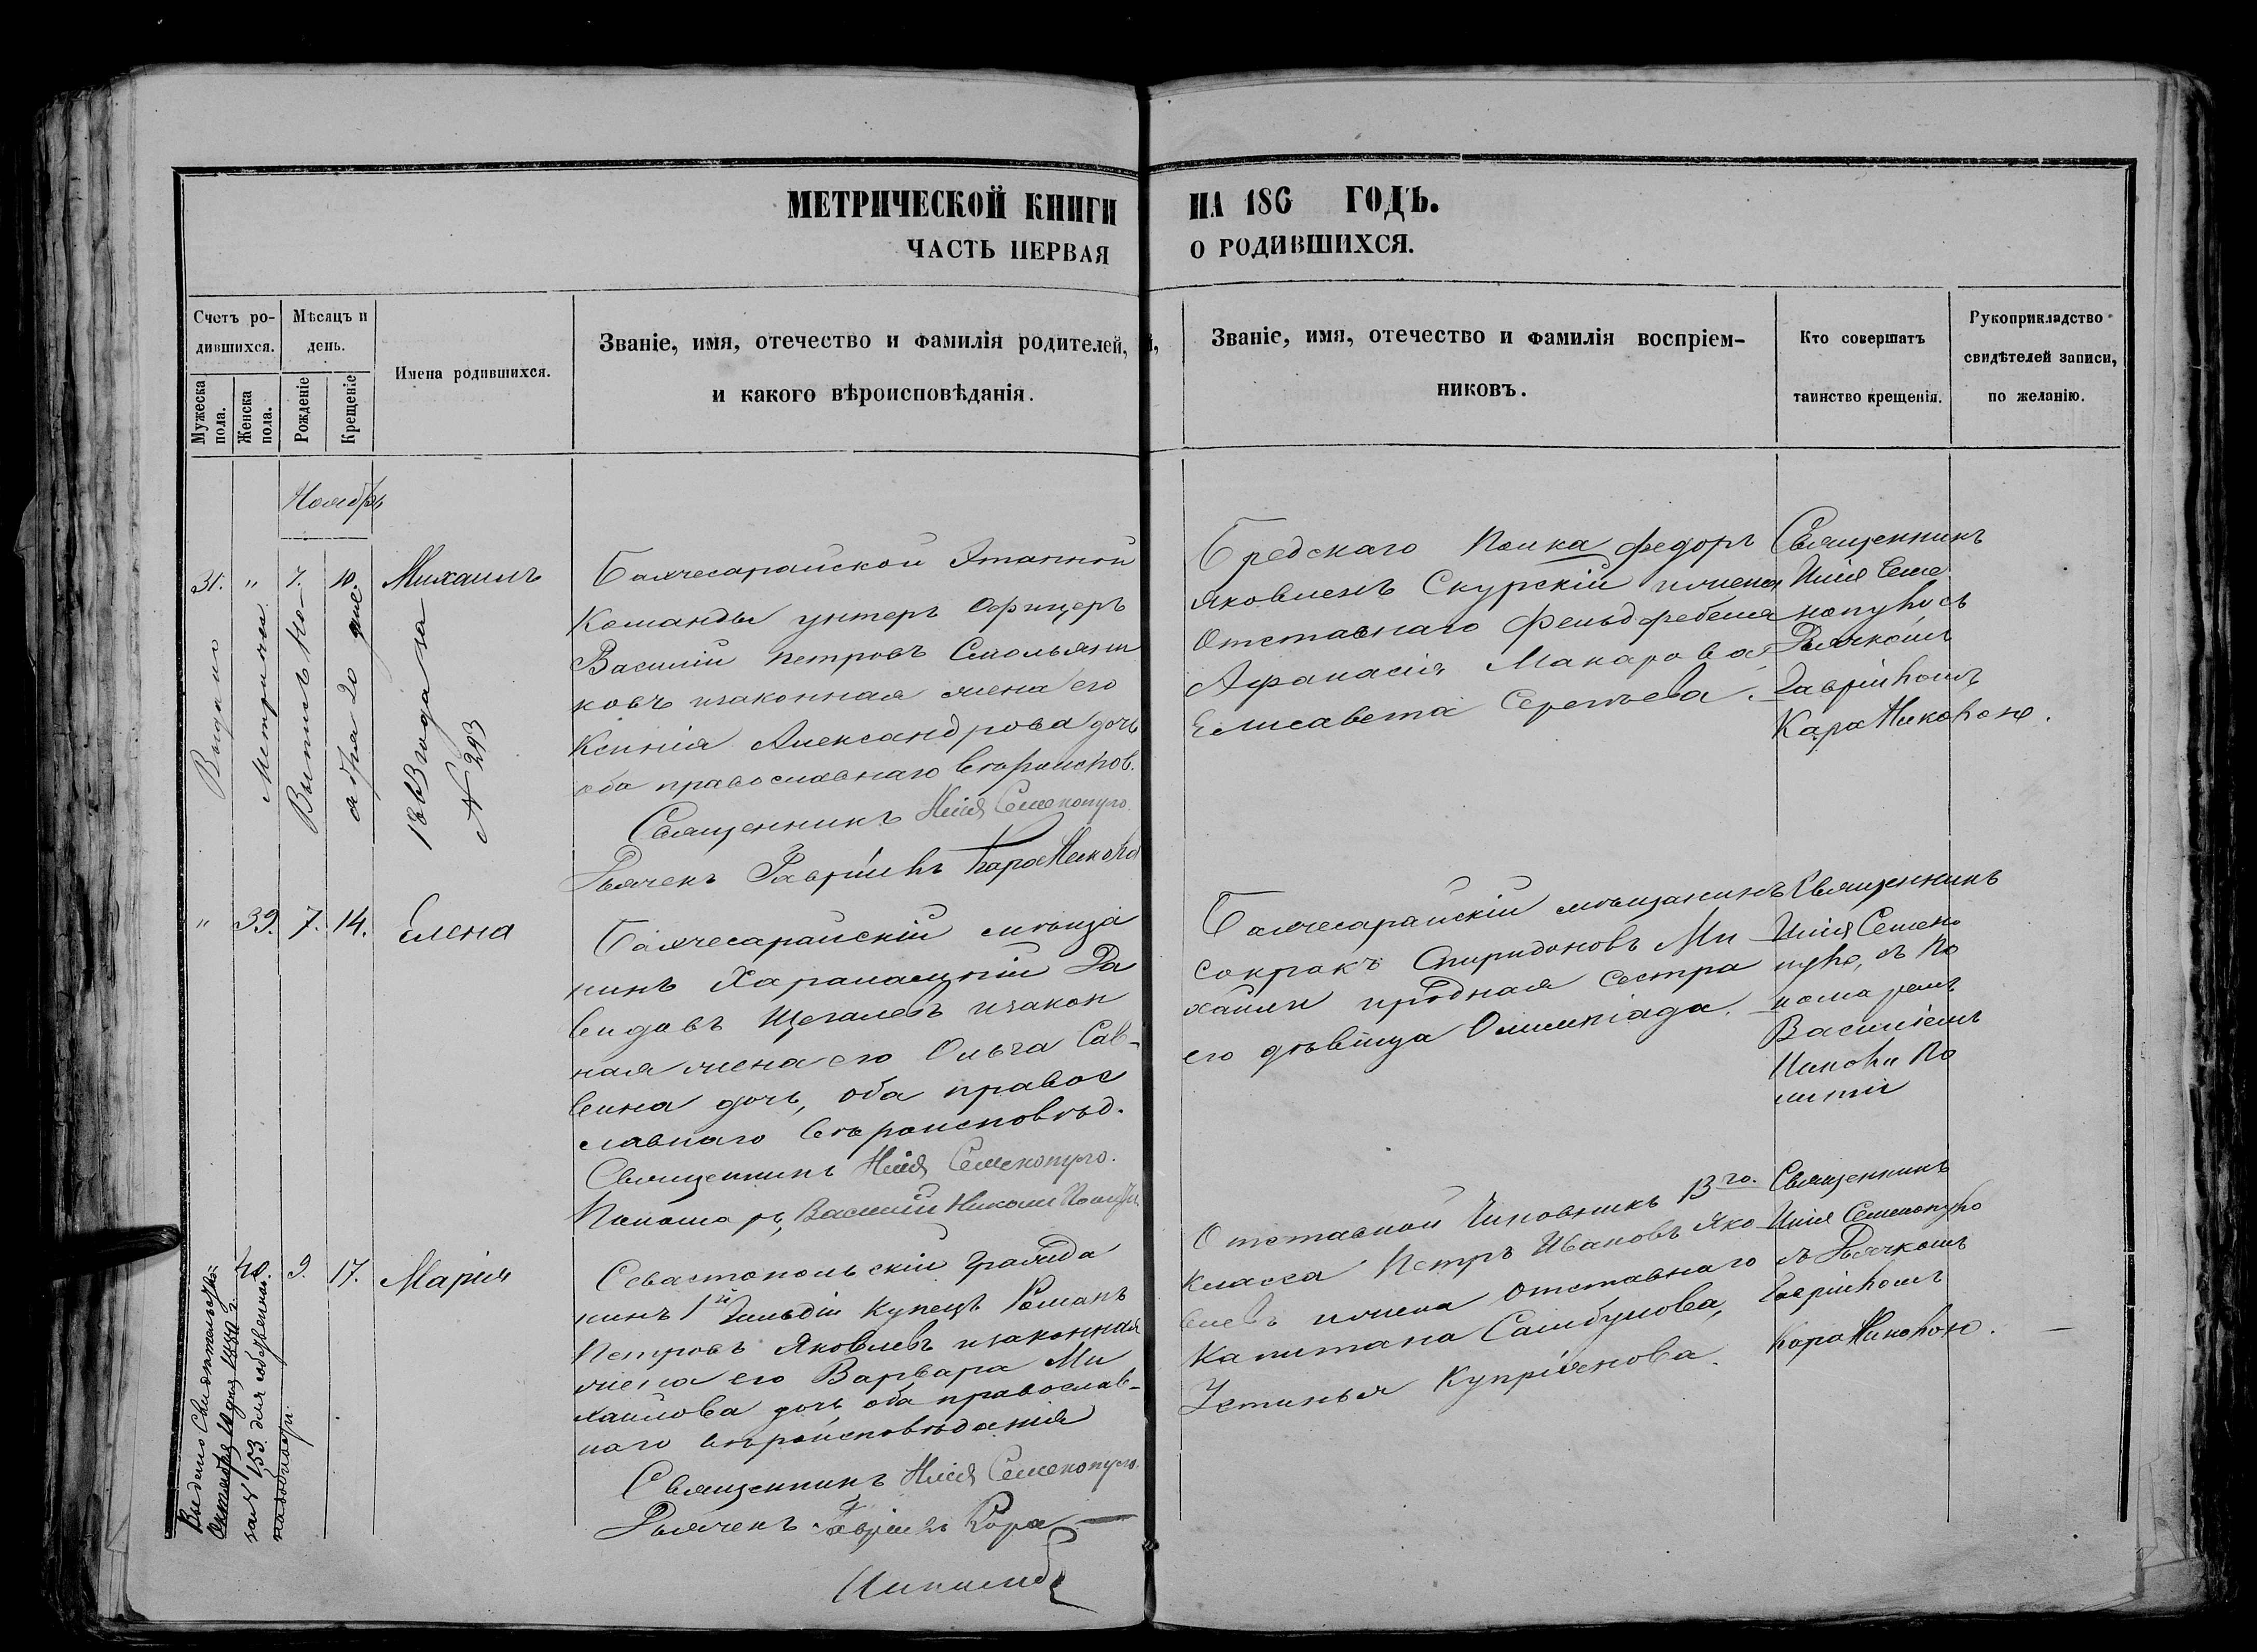 МЕТРИЧЕСКОЙ КНИГИ НА 186 ГОДЪ.
ЧАСТЬ ПЕРВАЯ О РОДИВШИХСЯ.
Счетъ ро-
дившихся.
Мужеска
пола.
Женска
пола.
Мѣсяцъ и
день.
Рожденіе
Крещеніе
Имена родившихся.
Званіе, имя, отечество и фамилія родителей,
и какого вѣроисповѣданія.
Званіе, имя, отечество и фамилія воспріем-
никовъ.
Кто совершатъ
таинство крещенія.
Рукоприкладство
свидѣтелей записи,
по желанію.
Ноябрь
31. " 7. 10. Михаилъ
Выдано
Метрическ
N 293
Бахчесарайской Этапной
Команды унтеръ Офицеръ
Василій Петровъ Смольяни
ковъ изаконная жена его
Ксенія Александрова дочь
оба православнаго вѣроиспов.
Священникъ
Дьячекъ Гавріилъ
Бредскаго Полка Федоръ
Яковлевъ Скурскій ижена
Отставнаго Фельдфебеля
Афанасія Макарова
Елисавета Сергѣева.
Священникъ
Дьячкомъ
Гавріиломъ
" 39. 7. 14. Елена
Бахчесарайскій мѣща
нинъ Харалампій Да
видовъ Щегалевъ изакон
ная жена его Ольга Сав-
вина дочь, оба правос
лавнаго вѣроисповѣд.
Священникъ
Пономарь Василій
Бахчесарайскій мѣщанинъ
Сократъ Спиридоновъ Ми
хаили иродная сестра
его дѣвица Олимпіада.
Священникъ
съ По
номаремъ
Василіемъ
40. 9. 17. Марія
Выдано Свидетельство
Октября 10 дня 1880 г.
за N 153
Севастопольскій Гражда
нинъ 1й Гильдіи Купецъ Романъ
Петровъ Яковлевъ изаконная
жена его Варвара Ми
хаилова дочь оба православ-
наго вѣроисповѣданія
Священникъ
Дьячекъ Гавріилъ Кара
Отставной Чиновникъ 13го.
класса Петръ Ивановъ Яко
влевъ ижена Отставнаго
Капитана Самбулова,
Устинья Купріянова.
Священникъ
съ Дьячкомъ
Гавріиломъ